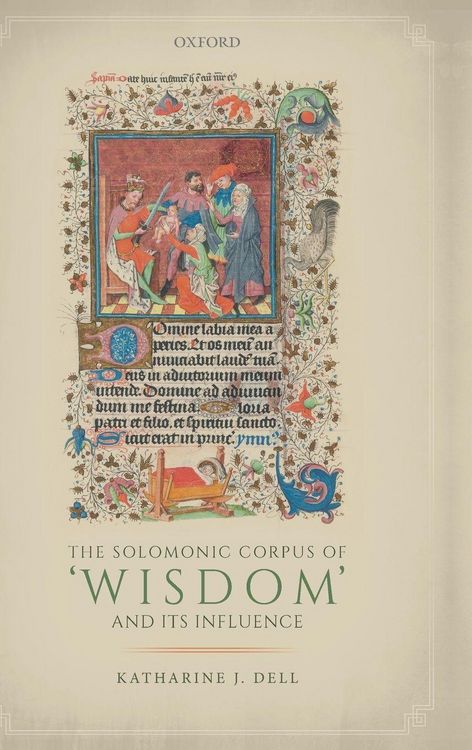 OXFORD
Date huic infante
Domine labia mea a
peries. Et os meū an
nunciabit laudē tuā.
Deus in adiutorium meum
intende. Domine ad adiuuan
dum me festina. Gloria
patri et filio. et spiritui sancto.
Sicut erat in princ'. ymn'.
THE SOLOMONIC CORPUS OF
‘WISDOM’
AND ITS INFLUENCE
KATHARINE J. DELL